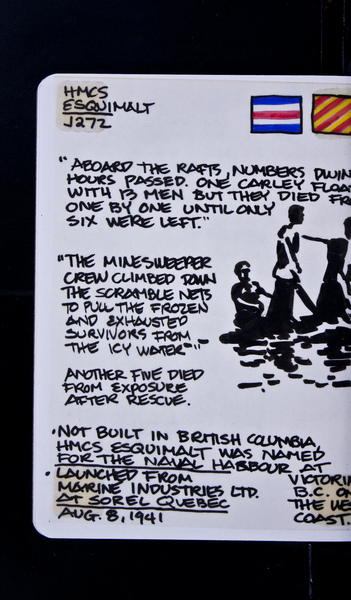 HMCS
ESQUIMALT
J272
"ABOARD THE RAFTS, NUMBERS
HOURS PASSED. ONE CARLEY
WITH 13 MEN BUT THEY DIED
ONE BY ONE UNTIL ONLY
SIX WERE LEFT."
"THE MINESWEEPER
CREW CLIMBED DOWN
THE SCRAMBLE NETS
TO PULL THE FROZEN
AND EXHAUSTED
SURVIVORS FROM
THE ICY WATER"
ANOTHER FIVE DIED
FROM EXPOSURE
AFTER RESCUE.
• NOT BUILT IN BRITISH COLUMBIA,
HMCS ESQUIMALT WAS NAMED
FOR THE NAVAL HARBOUR AT
• LAUNCHED FROM
MARINE INDUSTRIES LTD.
AT SOREL QUEBEC
AUG. 8, 1941
B.C.
THE
COAST.